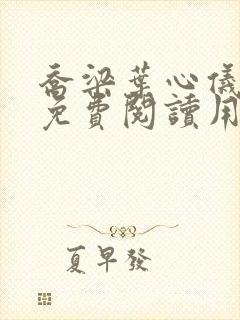 喬梁葉心儀
免費閱讀用
夏早發